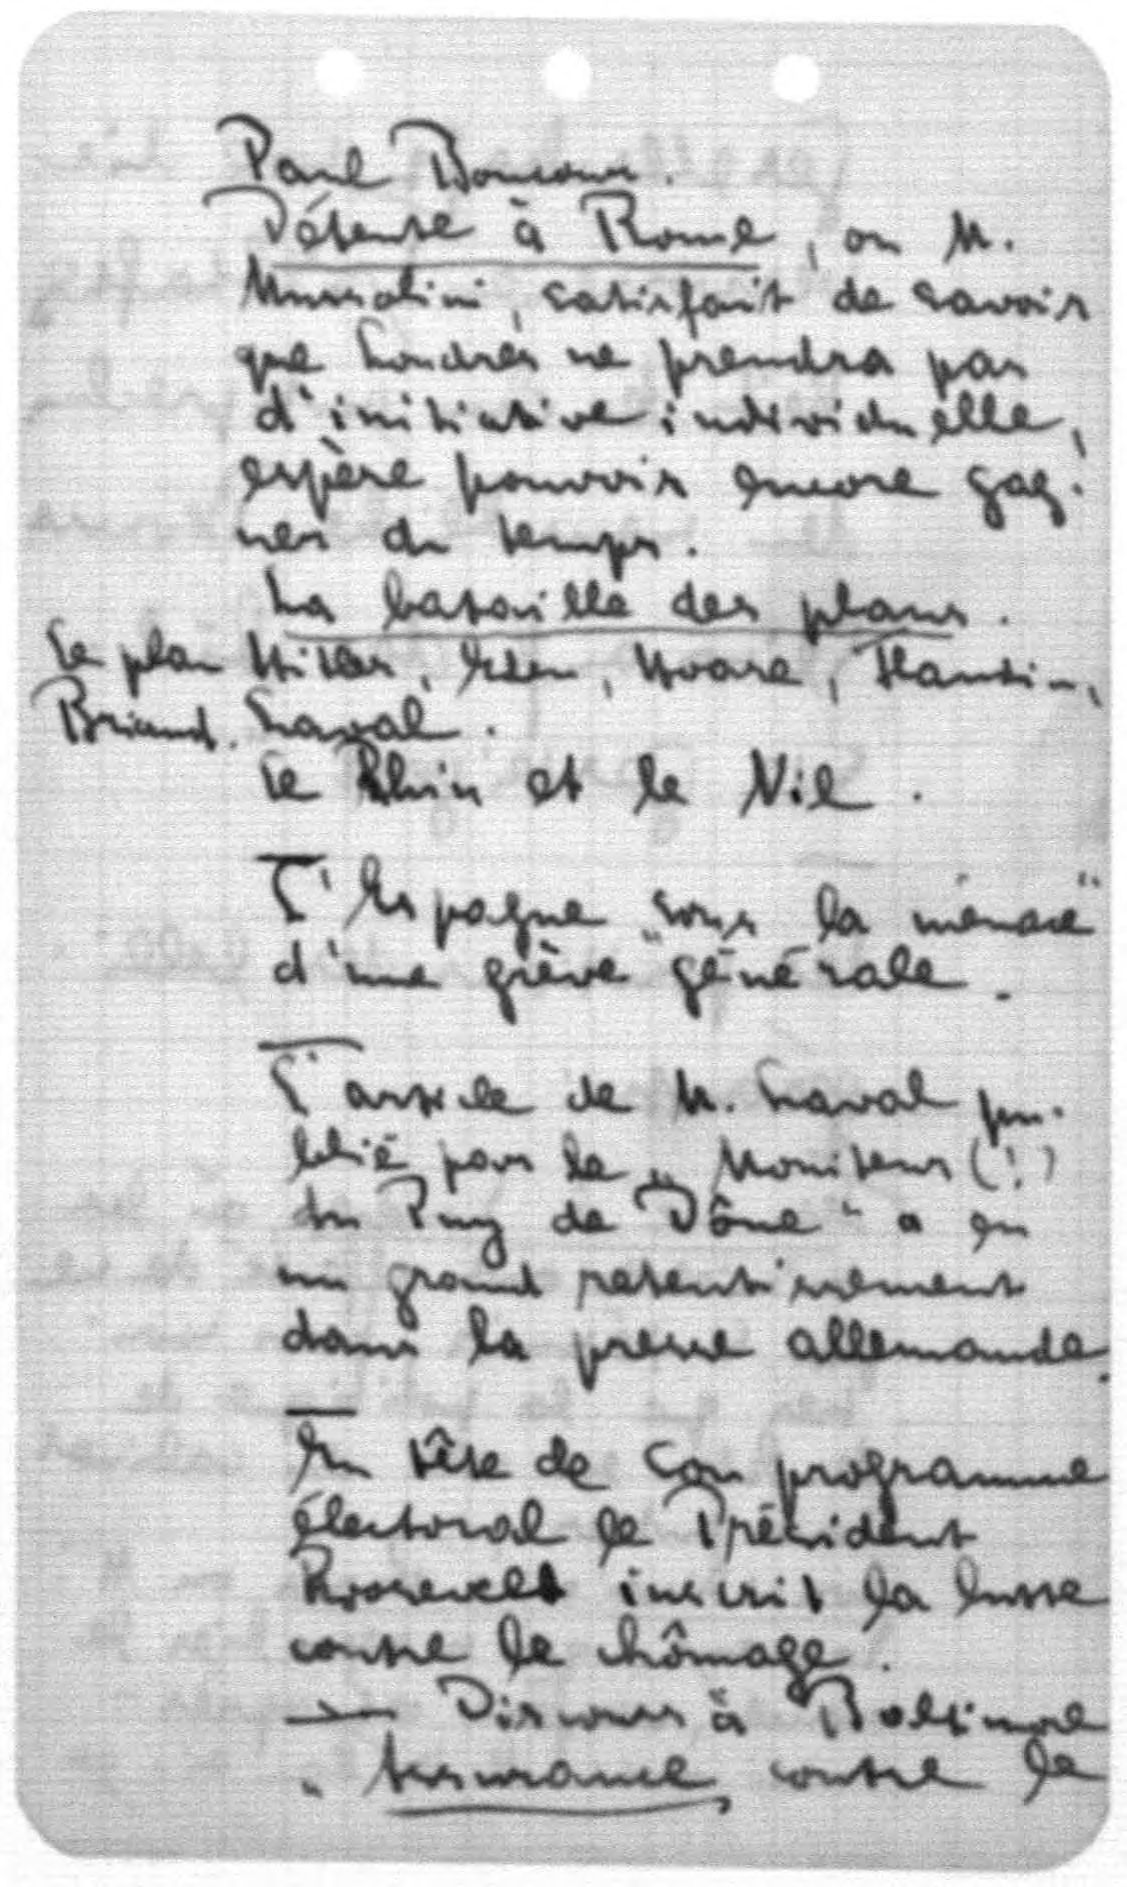 Paul Boncour.
Détente à Rome, ou M.
Mussolini, satisfait de savoir
que Londres ne prendra pas
d'initiative individuelle,
espère pouvoir encore gag-
ner du temps.
La bataille des plans.
Le plan Hitler, Eden, Hoare, Flandin,
Briand. Laval.
Le Rhin et le Nil.
L'Espagne sous la menace
d'une grève "générale".
L'article de M. Laval pu-
blié par le „Moniteur (!)
du Puy de Dôme" a eu
un grand retentissement
dans la presse allemande.
En tête de son programme
électoral le Président
Roosevelt inscrit la lutte
contre le chômage.
— Discours à Baltimore
" Assurance contre le